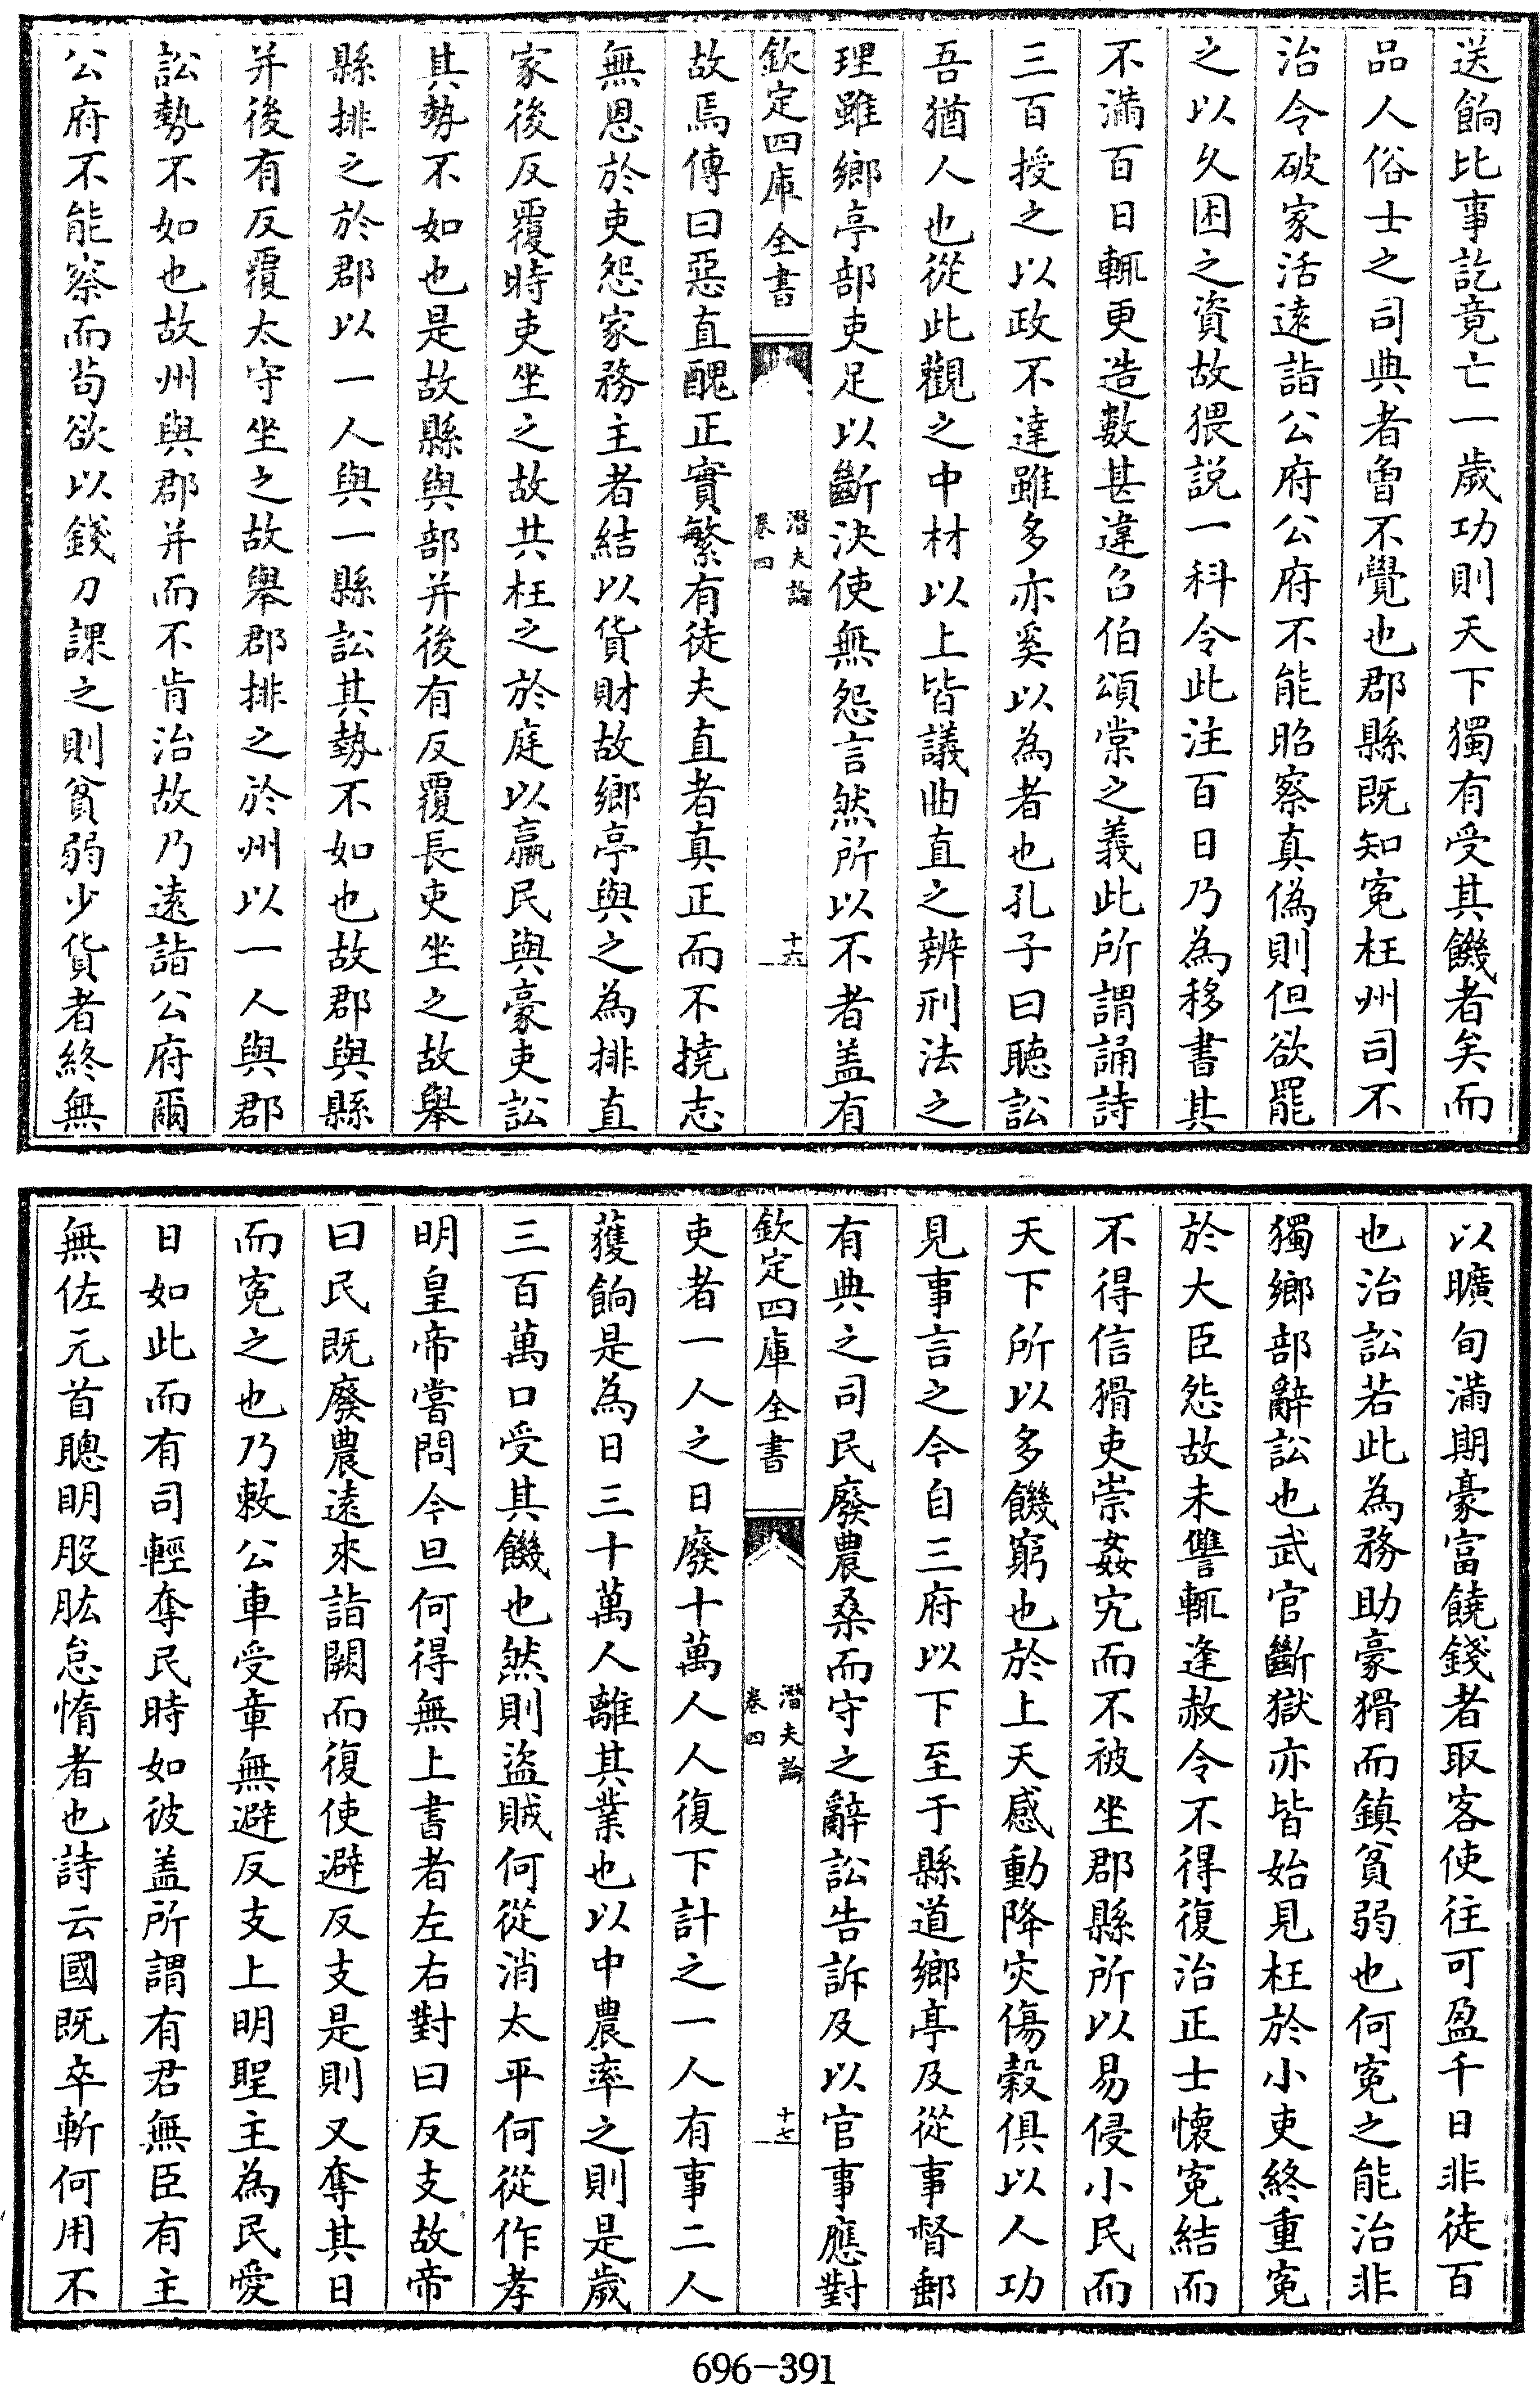 送餉比事訖竟亡一歲功則天下獨有受其饑者矣而
品人俗士之司典者曾不覺也郡縣既知冤枉州司不
治令破家活遠詣公府公府不能昭察真偽則但欲罷
之以久困之資故猥説一科令此注百日乃為移書其
不滿百日輒更造數甚違召伯頌棠之義此所謂誦詩
三百授之以政不達雖多亦奚以為者也孔子曰聽訟
吾猶人也從此觀之中材以上皆議曲直之辨刑法之
理雖鄉亭部吏足以斷決使無怨言然所以不者盖有
欽定四庫全書
潛夫論
卷四
十六
故焉傳曰惡直醜正實繁有徒夫直者真正而不撓志
無恩於吏怨家務主者結以貨財故鄉亭與之為排直
家後反覆時吏坐之故共枉之於庭以羸民與豪吏訟
其勢不如也是故縣與部并後有反覆長吏坐之故舉
縣排之於郡以一人與一縣訟其勢不如也故郡與縣
并後有反覆太守坐之故舉郡排之於州以一人與郡
訟勢不如也故州與郡并而不肯治故乃遠詣公府爾
公府不能察而茍欲以錢刀課之則貧弱少貨者終無
以曠旬滿期豪富饒錢者取客使往可盈千日非徒百
也治訟若此為務助豪猾而鎮貧弱也何冤之能治非
獨鄉部辭訟也武官斷獄亦皆始見枉於小吏終重冤
於大臣怨故未讐輒逢赦令不得復治正士懷冤結而
不得信猾吏崇姦宄而不被坐郡縣所以易侵小民而
天下所以多饑窮也於上天感動降灾傷穀俱以人功
見事言之今自三府以下至于縣道鄉亭及從事督郵
有典之司民廢農桑而守之辭訟告訴及以官事應對
欽定四庫全書
潛夫論
卷四
十七
吏者一人之日廢十萬人人復下計之一人有事二人
獲餉是為日三十萬人離其業也以中農率之則是歲
三百萬口受其饑也然則盜賊何從消太平何從作孝
明皇帝嘗問今旦何得無上書者左右對曰反支故帝
曰民既廢農遠來詣闕而復使避反支是則又奪其日
而冤之也乃敕公車受章無避反支上明聖主為民愛
日如此而有司輕奪民時如彼盖所謂有君無臣有主
無佐元首聰明股肱怠惰者也詩云國既卒斬何用不
696-391